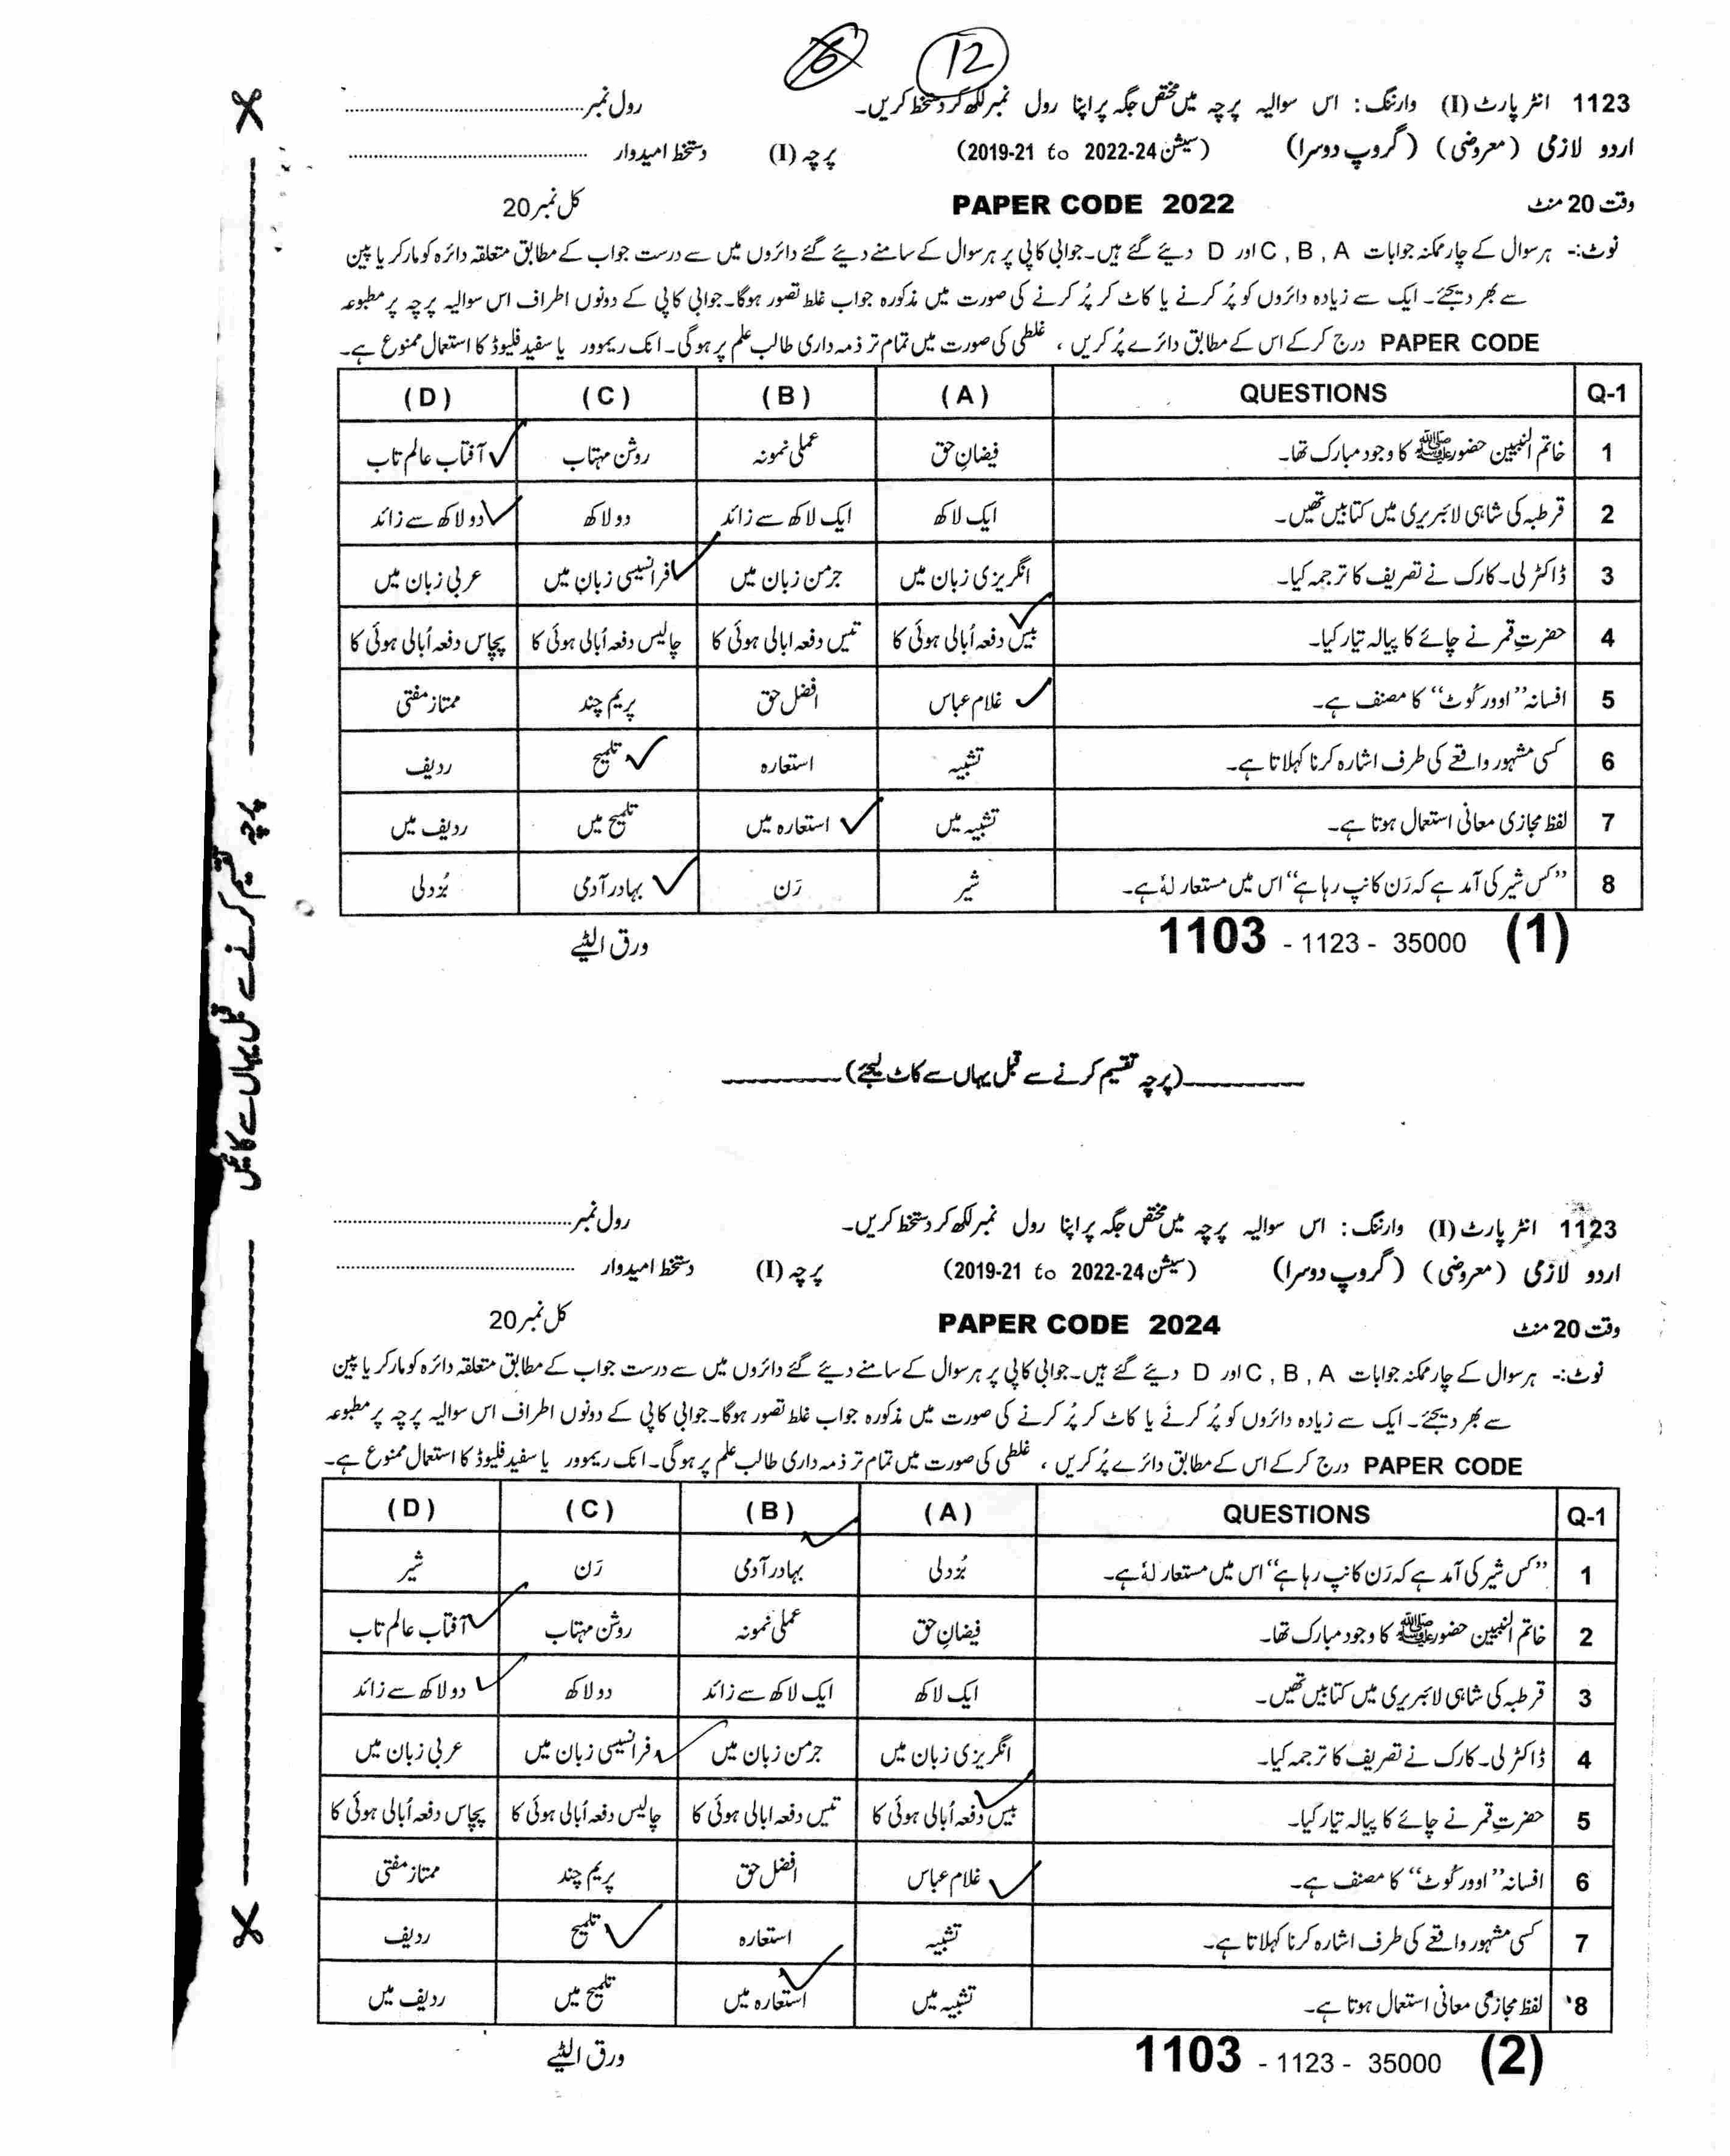 12
1123 انٹر پارٹ (I) وارننگ: اس سوالیہ پرچہ میں مختص جگہ پر اپنا رول نمبر لکھ کر دستخط کریں۔ رول نمبر
اردو لازمی (معروضی) (گروپ دوسرا) (سیشن 2022-24 to 2019-21) پرچہ (I) دستخط امیدوار
وقت 20 منٹ PAPER CODE 2022 کل نمبر 20
نوٹ:- ہر سوال کے چار ممکنہ جوابات C , B , A اور D دیئے گئے ہیں۔ جوابی کاپی پر ہر سوال کے سامنے دیئے گئے دائروں میں سے درست جواب کے مطابق متعلقہ دائرہ کو مارکر یا پین
سے بھر دیجئے۔ ایک سے زیادہ دائروں کو پُر کرنے یا کاٹ کر پُر کرنے کی صورت میں مذکورہ جواب غلط تصور ہوگا۔ جوابی کاپی کے دونوں اطراف اس سوالیہ پرچہ پر مطبوعہ
PAPER CODE درج کر کے اس کے مطابق دائرے پُر کریں ، غلطی کی صورت میں تمام تر ذمہ داری طالب علم پر ہوگی۔ انک ریموور یا سفید فلیوڈ کا استعمال ممنوع ہے۔
Q-1 QUESTIONS (A) (B) (C) (D)
1 خاتم النبیین حضور ﷺ کا وجود مبارک تھا۔ فیضانِ حق عملی نمونہ روشن مہتاب آفتاب عالم تاب
2 قرطبہ کی شاہی لائبریری میں کتابیں تھیں۔ ایک لاکھ ایک لاکھ سے زائد دو لاکھ دو لاکھ سے زائد
3 ڈاکٹر لی۔کارک نے تصریف کا ترجمہ کیا۔ انگریزی زبان میں جرمن زبان میں فرانسیسی زبان میں عربی زبان میں
4 حضرتِ قمر نے چائے کا پیالہ تیار کیا۔ بیس دفعہ اُبالی ہوئی کا تیس دفعہ ابالی ہوئی کا چالیس دفعہ اُبالی ہوئی کا پچاس دفعہ اُبالی ہوئی کا
5 افسانہ ”اوور کُوٹ“ کا مصنف ہے۔ غلام عباس افضل حق پریم چند ممتاز مفتی
6 کسی مشہور واقعے کی طرف اشارہ کرنا کہلاتا ہے۔ تشبیہ استعارہ تلمیح ردیف
7 لفظ مجازی معانی استعمال ہوتا ہے۔ تشبیہ میں استعارہ میں تلمیح میں ردیف میں
8 ”کس شیر کی آمد ہے کہ رَن کانپ رہا ہے“ اس میں مستعار لہٗ ہے۔ شیر رَن بہادر آدمی بُزدلی
1103 - 1123 - 35000 (1) ورق الٹیے
(پرچہ تقسیم کرنے سے قبل یہاں سے کاٹ لیجئے)
پرچہ تقسیم کرنے سے قبل یہاں سے کاٹیں
1123 انٹر پارٹ (I) وارننگ: اس سوالیہ پرچہ میں مختص جگہ پر اپنا رول نمبر لکھ کر دستخط کریں۔ رول نمبر
اردو لازمی (معروضی) (گروپ دوسرا) (سیشن 2022-24 to 2019-21) پرچہ (I) دستخط امیدوار
وقت 20 منٹ PAPER CODE 2024 کل نمبر 20
نوٹ:- ہر سوال کے چار ممکنہ جوابات C , B , A اور D دیئے گئے ہیں۔ جوابی کاپی پر ہر سوال کے سامنے دیئے گئے دائروں میں سے درست جواب کے مطابق متعلقہ دائرہ کو مارکر یا پین
سے بھر دیجئے۔ ایک سے زیادہ دائروں کو پُر کرنے یا کاٹ کر پُر کرنے کی صورت میں مذکورہ جواب غلط تصور ہوگا۔ جوابی کاپی کے دونوں اطراف اس سوالیہ پرچہ پر مطبوعہ
PAPER CODE درج کر کے اس کے مطابق دائرے پُر کریں ، غلطی کی صورت میں تمام تر ذمہ داری طالب علم پر ہوگی۔ انک ریموور یا سفید فلیوڈ کا استعمال ممنوع ہے۔
Q-1 QUESTIONS (A) (B) (C) (D)
1 ”کس شیر کی آمد ہے کہ رَن کانپ رہا ہے“ اس میں مستعار لہٗ ہے۔ بُزدلی بہادر آدمی رَن شیر
2 خاتم النبیین حضور ﷺ کا وجود مبارک تھا۔ فیضانِ حق عملی نمونہ روشن مہتاب آفتاب عالم تاب
3 قرطبہ کی شاہی لائبریری میں کتابیں تھیں۔ ایک لاکھ ایک لاکھ سے زائد دو لاکھ دو لاکھ سے زائد
4 ڈاکٹر لی۔کارک نے تصریف کا ترجمہ کیا۔ انگریزی زبان میں جرمن زبان میں فرانسیسی زبان میں عربی زبان میں
5 حضرتِ قمر نے چائے کا پیالہ تیار کیا۔ بیس دفعہ اُبالی ہوئی کا تیس دفعہ ابالی ہوئی کا چالیس دفعہ اُبالی ہوئی کا پچاس دفعہ اُبالی ہوئی کا
6 افسانہ ”اوور کُوٹ“ کا مصنف ہے۔ غلام عباس افضل حق پریم چند ممتاز مفتی
7 کسی مشہور واقعے کی طرف اشارہ کرنا کہلاتا ہے۔ تشبیہ استعارہ تلمیح ردیف
8 لفظ مجازی معانی استعمال ہوتا ہے۔ تشبیہ میں استعارہ میں تلمیح میں ردیف میں
1103 - 1123 - 35000 (2) ورق الٹیے